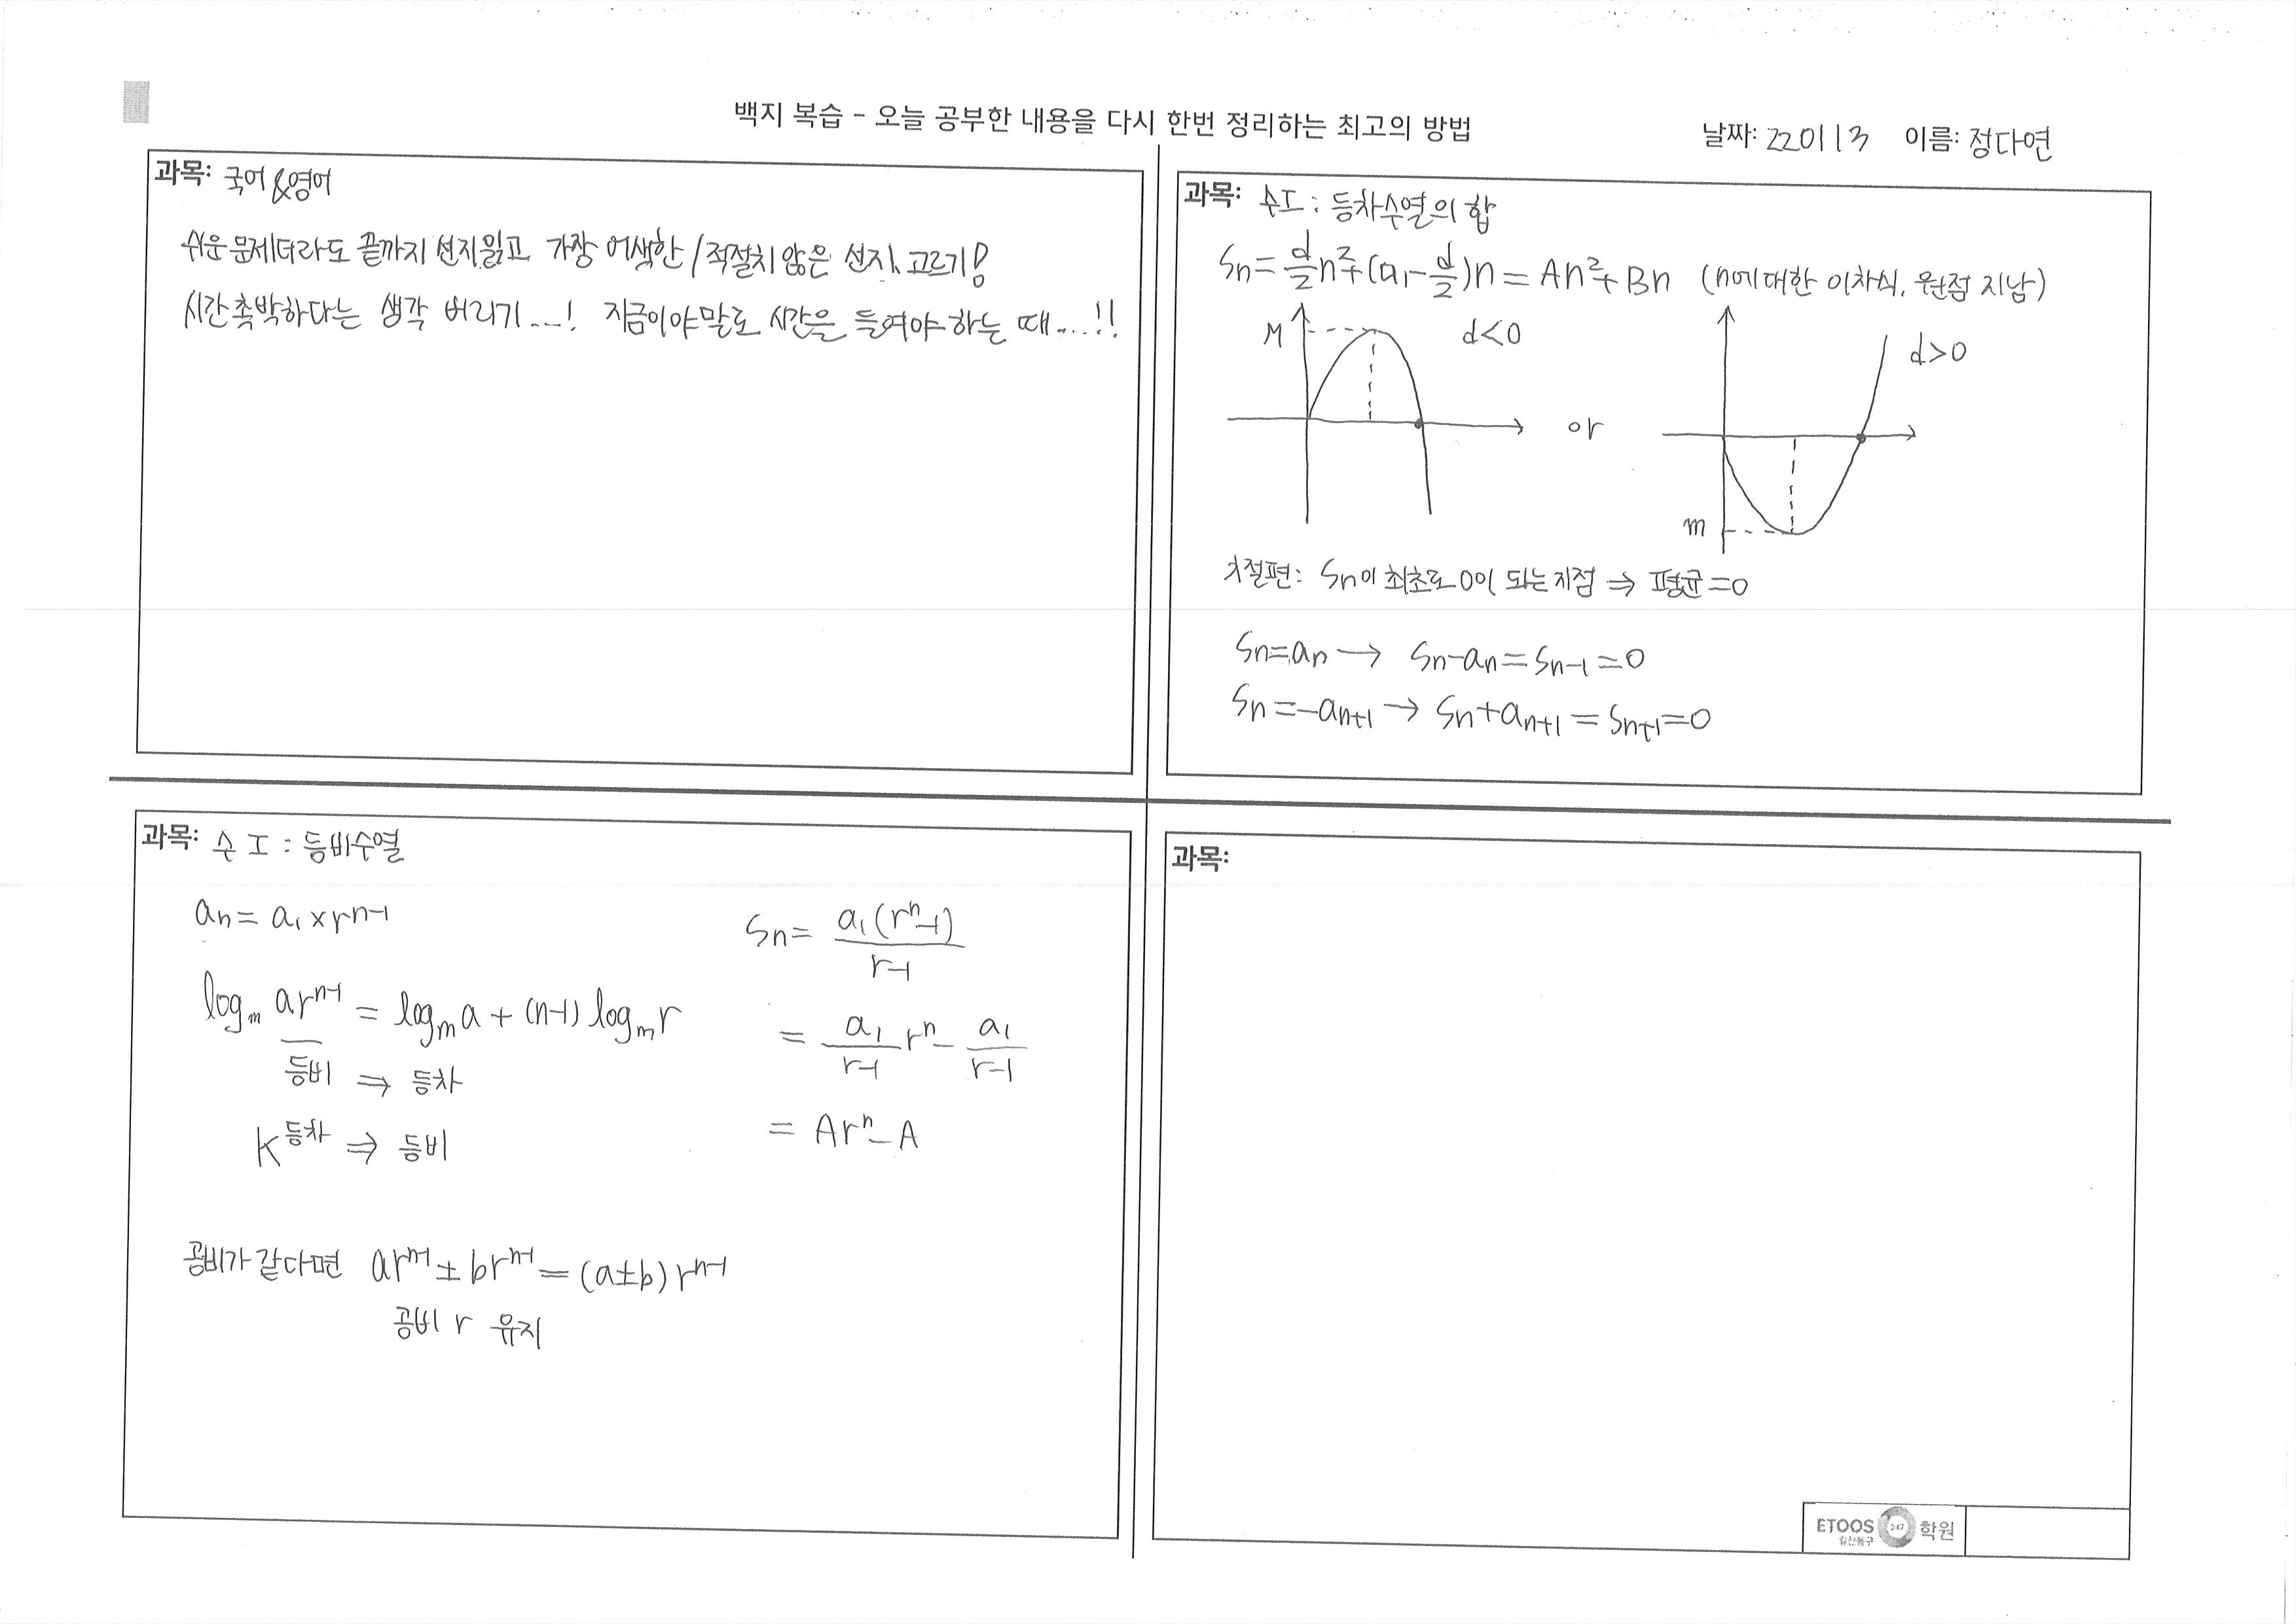 백지 복습 - 오늘 공부한 내용을 다시 한번 정리하는 최고의 방법
날짜: 220113 이름: 정다연
과목: 국어&영어
쉬운 문제더라도 끝까지 선지읽고 가장 어색한/적절치 않은 선지 고르기!
시간 촉박하다는 생각 버리기...! 지금이야말로 시간을 들여야 하는 때...!!
과목: 수I: 등차수열의 합
Sn = d/2 n² + (a₁ - d/2)n = An² + Bn (n에 대한 이차식, 원점 지남)
M d<0
d>0
or
m
x절편: Sn이 최초로 0이 되는 지점 ⇒ 평균=0
Sn = an → Sn - an = Sn-1 = 0
Sn = -an+1 → Sn + an+1 = Sn+1 = 0
과목: 수I: 등비수열
an = a₁ × rⁿ⁻¹
logₘ arⁿ⁻¹ = logₘ a + (n-1) logₘ r
등비 ⇒ 등차
K^등차 ⇒ 등비
Sn = a₁(rⁿ-1) / r-1
= a₁/r-1 rⁿ - a₁/r-1
= Arⁿ - A
공비가 같다면 arⁿ⁻¹ ± brⁿ⁻¹ = (a±b)rⁿ⁻¹
공비 r 유지
과목:
ETOOS 247 학원